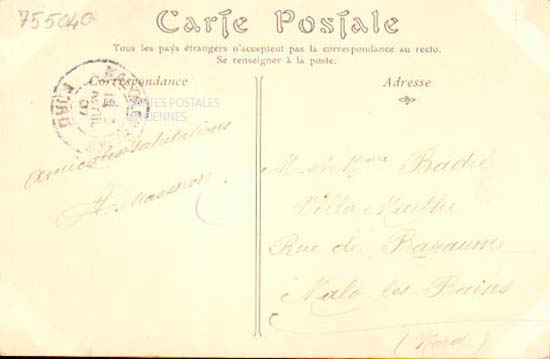 755040
Carte Postale
Tous les pays étrangers n'acceptent pas la correspondance au recto.
Se renseigner à la poste.
Correspondance
Adresse
CARTES POSTALES
ANCIENNES
Amicales salutations
M. et Mme Badie
Villa Marthe
Rue de Bapaume
Malo les Bains
(Nord)